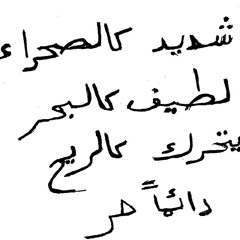 شديد كالصحراء
لطيف كالبحر
يتحرك كالريح
دائماً حر